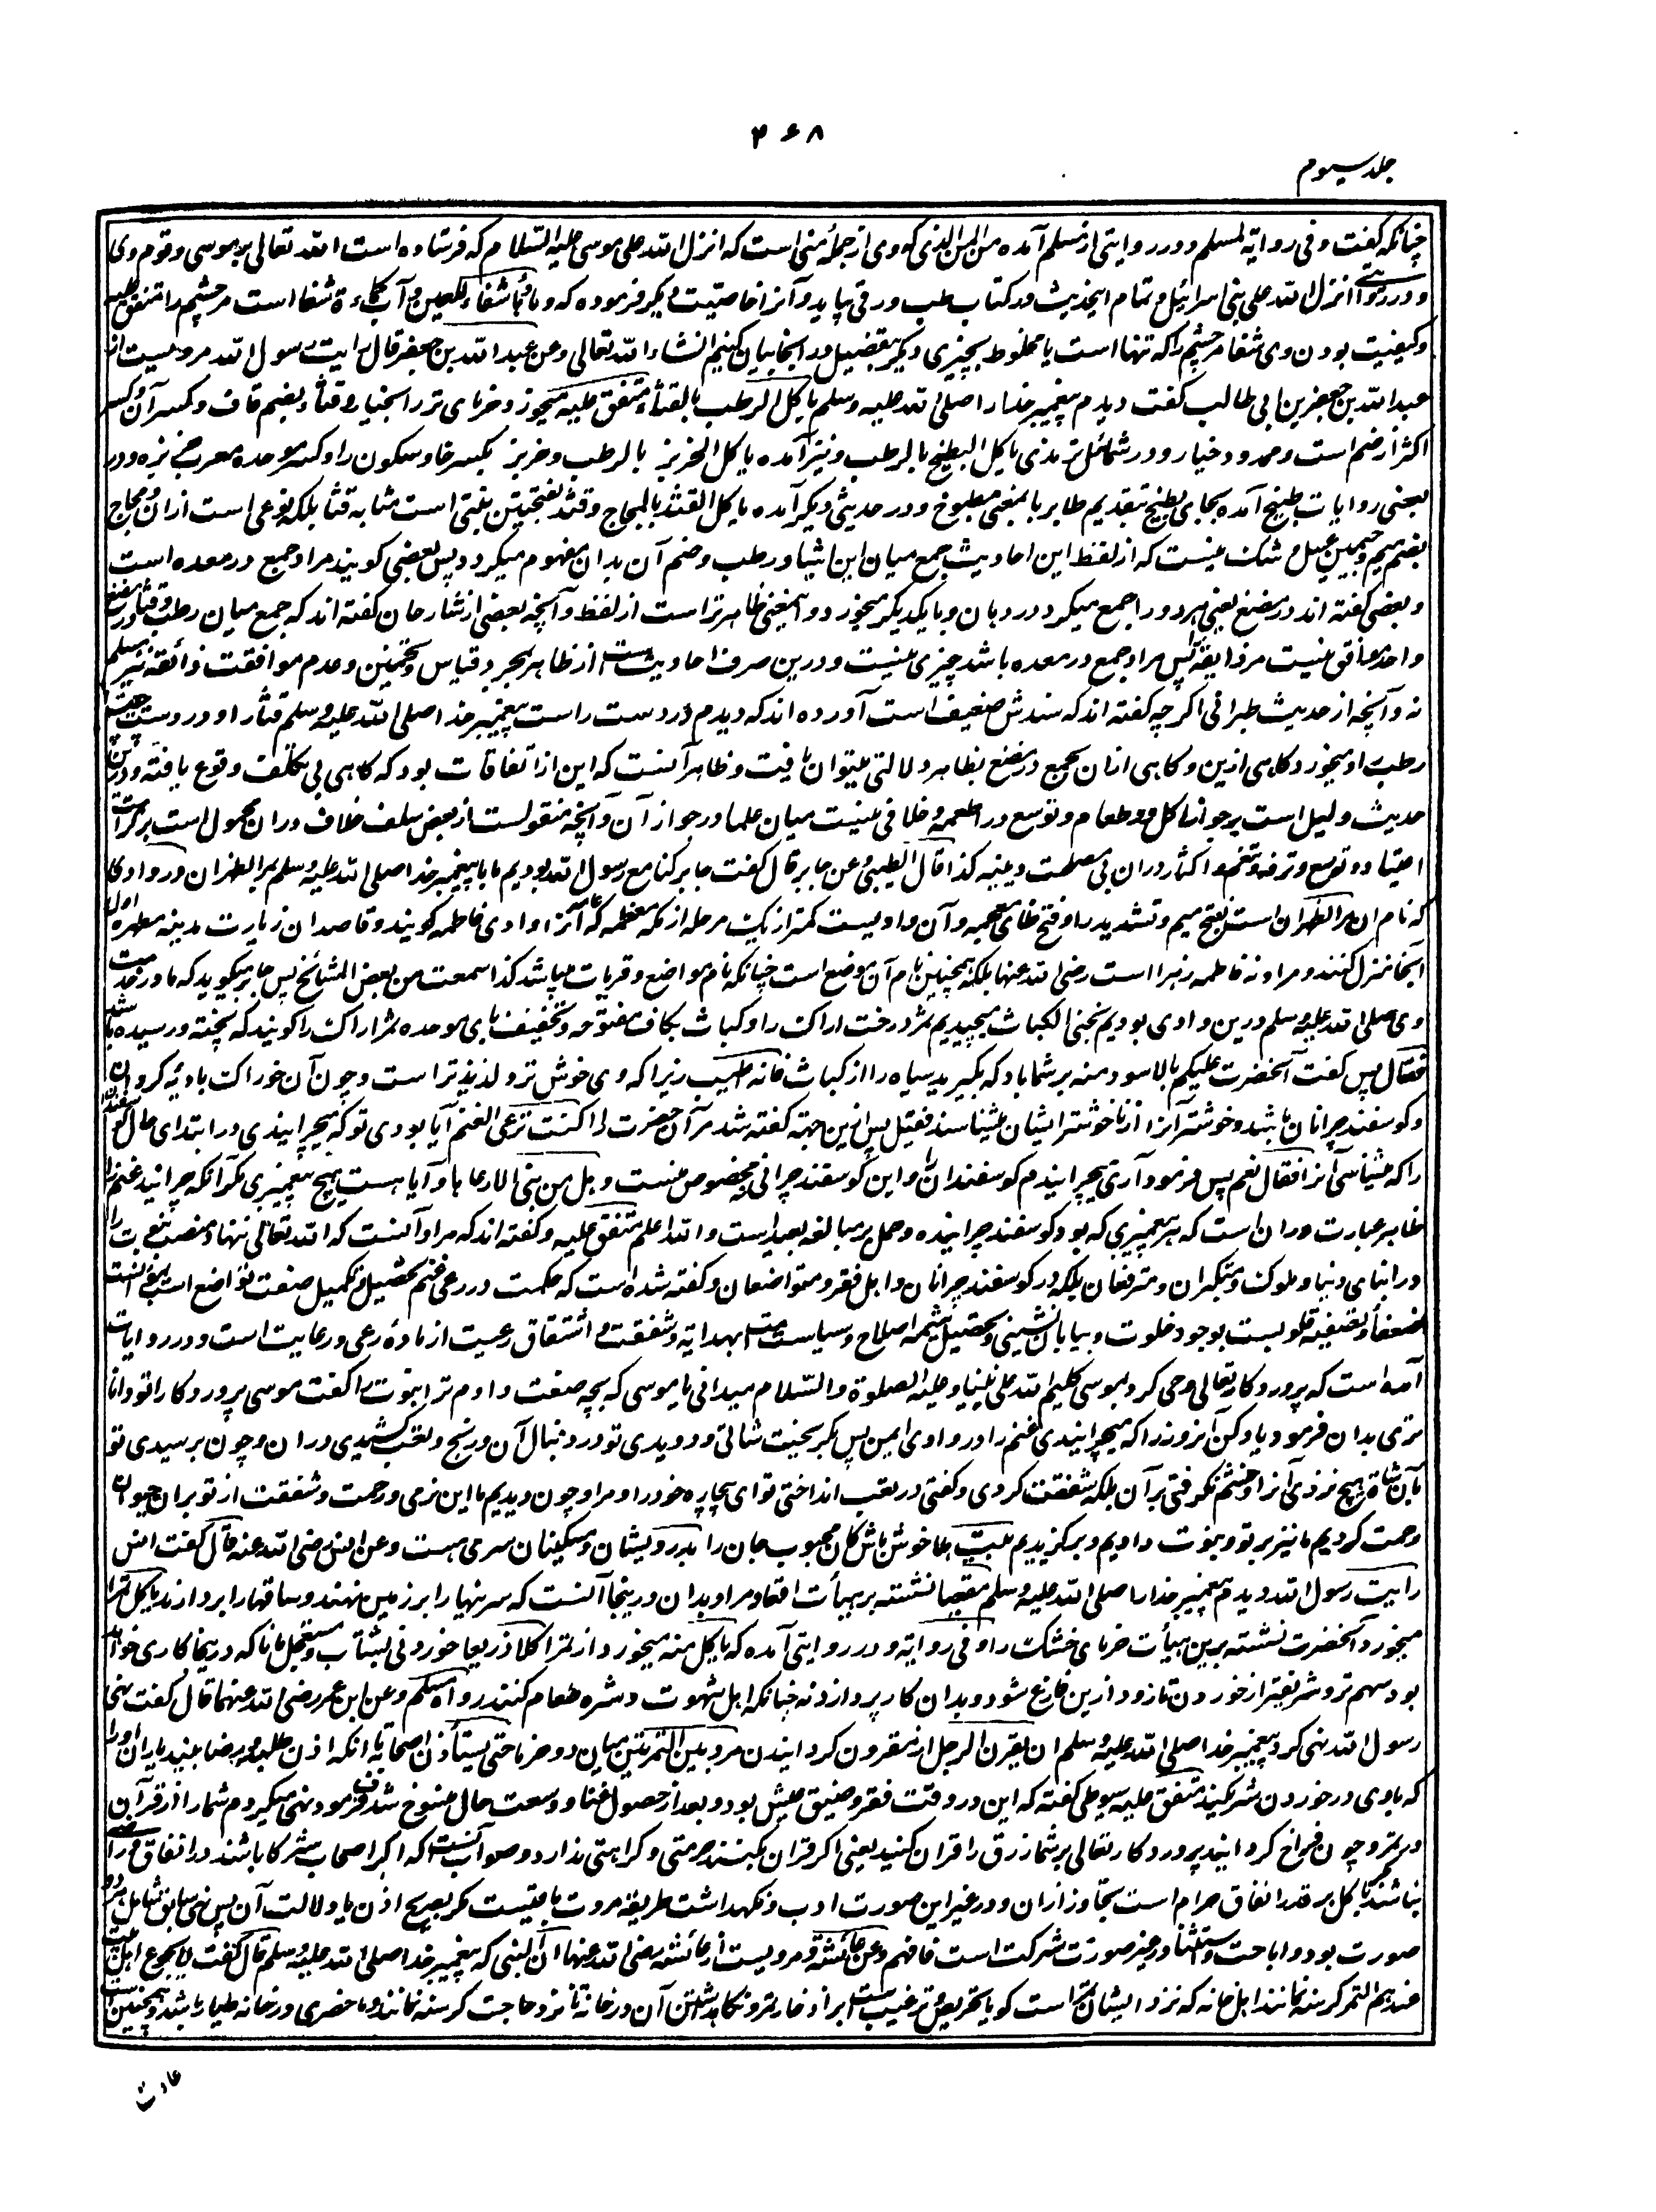 ۴۶۸
جلد سیوم
چنانکه گفت وفی روایة لمسلم و در روایتی از مسلم آمده من المن الذی که وی از جملهٔ منی است که انزل الله علی موسی علیه السلام که فرستاده است الله تعالی بر موسی و قوم وی
و در روایتی انزل الله علی بنی اسرائیل و تمام این حدیث در کتاب طب ورقی بیاید و آنرا خاصیت دیگر فرموده که و ماؤها شفاء للعین و آب کماءة شفا است مر چشم را متفق علیه
و کیفیت بودن وی شفا مر چشم را که تنها است یا مخلوط بچیزی دیگر بتفصیل در آنجا بیان کنیم انشاء الله تعالی وعن عبد الله بن جعفر قال رایت رسول الله مرویست از
عبد الله بن جعفر بن ابی طالب گفت دیدم پیغمبر خدا را صلی الله علیه و سلم یاکل الرطب بالقثاء متفق علیه میخورد خرمای تر را بخیار وقثاء بضم قاف و کسر آن و کسر
اکثر از ضم است و ممدود خیار و در شمائل ترمذی یاکل البطیخ بالرطب و نیز آمده یاکل الخربز بالرطب و خربز بکسر خا و سکون را و کسر موحده معرب خربزه و در
بعضی روایات طبیخ آمده بجای بطیخ بتقدیم طا بر با بمعنی مطبوخ و در حدیثی دیگر آمده یاکل القثد بالمجاج و قثد بفتحتین نبتی است مشابه قثا بلکه نوعی است ازان و مجاج
بضم میم و جیمین عسل و شک نیست که از لفظ این احادیث جمع میان این اشیا و رطب و ضم آن بدان مفهوم میگردد پس بعضی گویند مراد جمع در معده است
و بعضی گفته اند در مضغ یعنی هر دو را جمع میکرد در دهان و با یکدیگر میخورد و اینمعنی ظاهرتر است از لفظ و آنچه بعضی از شارحان گفته اند که جمع میان رطب و قثا در مضغ
واحد موافق نیست مر ذایقه را پس مراد جمع در معده باشد چیزی نیست و درین صرف احادیث است از ظاهر بمجرد قیاس و تخمین و عدم موافقت ذائقه نیز مسلم
نه و آنچه از حدیث طبرانی اگرچه گفته اند که سندش ضعیف است آورده اند که دیدم در دست راست پیغمبر خدا صلی الله علیه و سلم قثا را و در دست چپ
رطب او میخورد گاهی ازین و گاهی ازان بجمع در مضغ بظاهر دلالتی میتوان یافت و ظاهر آنست که این از اتفاقات بود که گاهی بی تکلف وقوع یافته و درین
حدیث دلیل است بر جواز اکل دو طعام و توسع در اطعمه و خلافی نیست میان علما در جواز آن و آنچه منقولست از بعض سلف خلاف دران محمول است بر کراهت
اعتیاد و توسع و ترفه و تنعم و اکثار دران بی مصلحت دینیه کذا قال الطیبی وعن جابر قال گفت جابر کنا مع رسول الله بودیم ما با پیغمبر خدا صلی الله علیه و سلم بمر الظهران در وادی
که نام آن مر الظهران است بفتح میم و تشدید را و فتح ظای معجمه و آن وادیست کمتر از یک مرحله از مکه معظمه که آنرا وادی فاطمه گویند و قاصدان زیارت مدینه مطهره اول
آنجا منزل کنند و مراد نه فاطمه زهرا است رضی الله عنها بلکه همچنین نام آن موضع است چنانکه نام مواضع و قریات میباشد کذا سمعت من بعض المشائخ پس جابر میگوید که ما در خدمت
وی صلی الله علیه و سلم درین وادی بودیم نجنی الکباث میچیدیم ثمر درخت اراک را و کباث بکاف مفتوحه و تخفیف بای موحده ثمر اراک را گویند که پخته و رسیده باشد
فقال پس گفت آنحضرت علیکم بالاسود منه بر شما باد که بگیرید سیاه را از کباث فانه اطیب زیرا که وی خوش تر و لذیذتر است و چون آن خوراک بادیه گردان
و گوسفند چرانان باشد و خوشتر آنرا از ناخوشتر ایشان میشناسند فقیل پس ازین جهة گفته شد مر آن حضرت را اکنت ترعی الغنم آیا بودی تو که میچرانیدی در ابتدای حال گوسفندان
را که میشناسی آنرا فقال نعم پس فرمود آری میچرانیدم گوسفندان را و این گوسفند چرانی بمن مخصوص نیست وهل من نبی الا رعاها و آیا هست هیچ پیغمبری مگر آنکه چرانیده غنم را
ظاهر عبارت دران است که هر پیغمبری که بود گوسفند چرانیده و حمل بر مبالغه بعید است والله اعلم متفق علیه و گفته اند که مراد آنست که الله تعالی ننهاد منصب نبوت را
در ابنای دنیا و ملوک و متکبران و مترفعان بلکه در گوسفند چرانان و اهل فقر و متواضعان و گفته شده است که حکمت در رعی غنم تحصیل و تکمیل صفت تواضع است بمؤانست
ضعفا و تصفیه قلوبست بوجود خلوت و بیابان نشینی و تحصیل شیمه اصلاح و سیاست امت بهدایة و شفقت و اشتقاق رعیت از مادهٔ رعی و رعایت است و در روایات
آمده است که پروردگار تعالی وحی کرد بموسی کلیم الله علی نبینا و علیه الصلوة والسلام میدانی یا موسی که بچه صفت دادم ترا نبوت را گفت موسی پروردگارا تو دانا
تری بدان فرمود یاد کن آنروز را که میچرانیدی غنم را در وادی ایمن پس بگریخت شاتی و دویدی تو در دنبال آن و رنج و تعب کشیدی دران و چون برسیدی تو
بآن شاة هیچ نزدی آنرا و خشم نگرفتی بر آن بلکه شفقت کردی و گفتی در تعب انداختی تو ای بیچاره خود را و مرا و چون دیدیم ما این نرمی و رحمت و شفقت از تو بران حیوان
رحمت کردیم ما نیز بر تو و نبوت دادیم و برگزیدیم بیت ها خوش باش کان محبوب جان را بدرویشان و مسکینان سری هست وعن انس رضی الله عنه قال گفت انس
رایت رسول الله دیدم پیغمبر خدا را صلی الله علیه و سلم مقعیا نشسته بر هیأت اقعا و مراد بدان درینجا آنست که سرینها را بر زمین نهند و ساقها را بردارند یاکل تمرا
میخورد آنحضرت نشسته برین هیأت خرمای خشک را وفی روایة و در روایتی آمده که یاکل منه میخورد از تمر اکلا ذریعا خوردنی بشتاب و مستعجل مانا که درینجا کاری خواهد
بود مهم تر و شریفتر از خوردن تا زود ازین فارغ شود و بدان کار پردازد نه چنانکه اهل شهوت و شره طعام کنند رواه مسلم وعن ابن عمر رضی الله عنهما قال گفت نهی
رسول الله نهی کرد پیغمبر خدا صلی الله علیه و سلم ان یقرن الرجل از مقرون گردانیدن مرد بین التمرتین میان دو خرما حتی یستأذن اصحابه تا آنکه اذن طلبد و برضا بیند یاران او را
که با وی در خوردن شریکند متفق علیه سیوطی گفته که این در وقت فقر و ضیق عیش بود و بعد از حصول غنا و وسعت حال منسوخ شد فرمود نهی میکردم شما را از قرآن
در تمر و چون فراخ گردانید پروردگار تعالی بر شما رزق را قران کنید یعنی اگر قران بکنند حرمتی و کراهتی ندارد و صواب آنست که اگر اصحاب شرکا باشند در انفاق و راضی
نباشند باکل بر قدر انفاق حرام است تجاوز ازان و در غیر این صورت ادب و نگهداشت طریقه مروت باقیست مگر بصریح اذن یا دلالت آن پس نهی سابق شامل هر دو
صورت بود و اباحت و استثنا در غیر صورت شرکت است فافهم وعن عائشة و مرویست از عائشه رضی الله عنها ان النبی که پیغمبر خدا صلی الله علیه و سلم قال گفت لا یجوع اهل بیت
عندهم التمر گرسنه نمانند اهل خانه که نزد ایشان تمر است گویا تحریض و ترغیب است بر ادخار تمر و نگاهداشتن آن در خانه تا نزد حاجت گرسنه نمانند و ما حضری در خانه طیار باشد و همچنین است
عادت